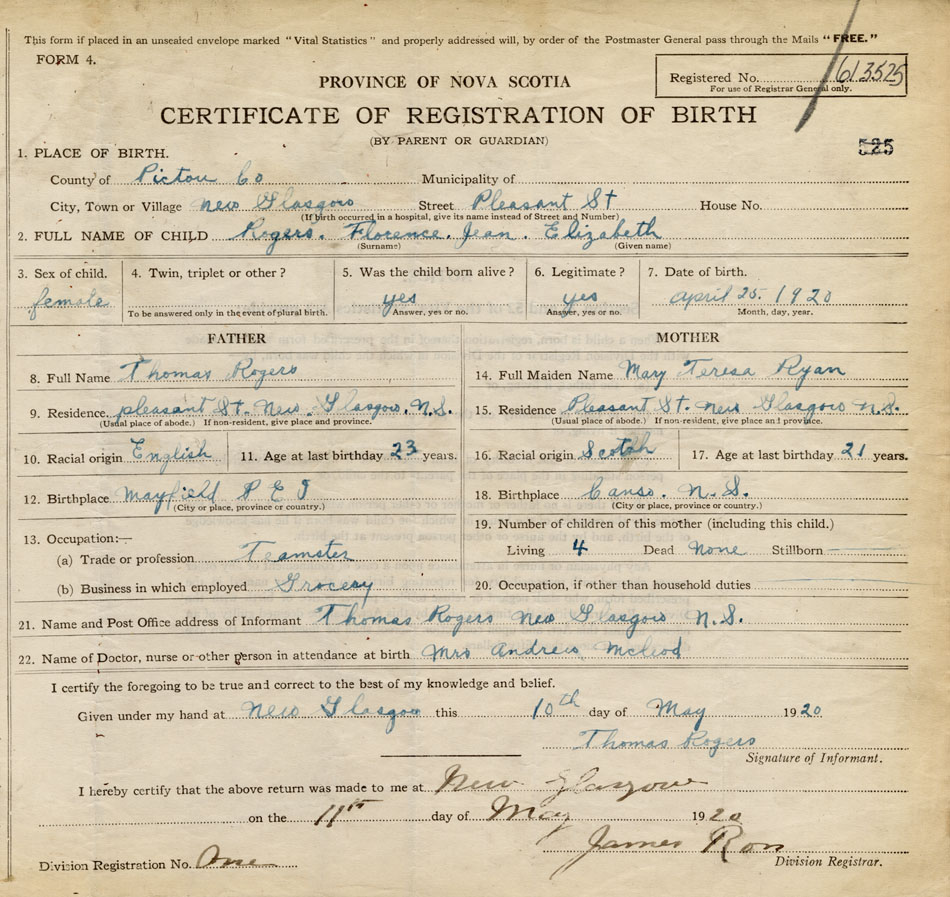 This form if placed in an unsealed envelope marked "Vital Statistics" and properly addressed will, by order of the Postmaster General pass through the Mails "FREE."
FORM 4.
PROVINCE OF NOVA SCOTIA
Registered No. 613525
For use of Registrar General only.
CERTIFICATE OF REGISTRATION OF BIRTH
(BY PARENT OR GUARDIAN)
525
1. PLACE OF BIRTH.
County of Pictou Co Municipality of
City, Town or Village New Glasgow Street Pleasant St House No.
(If birth occurred in a hospital, give its name instead of Street and Number)
2. FULL NAME OF CHILD Rogers. Florence. Jean. Elizabeth
(Surname) (Given name)
3. Sex of child. 4. Twin, triplet or other? 5. Was the child born alive? 6. Legitimate? 7. Date of birth.
female yes yes april 25. 1920
To be answered only in the event of plural birth. Answer, yes or no. Answer, yes or no. Month, day, year.
FATHER MOTHER
8. Full Name Thomas Rogers 14. Full Maiden Name Mary Teresa Ryan
9. Residence. pleasant St. New. Glasgow. N.S. 15. Residence Pleasant St. new Glasgow N.S.
(Usual place of abode.) If non-resident, give place and province. (Usual place of abode.) If non-resident, give place and province.
10. Racial origin English 11. Age at last birthday 23 years. 16. Racial origin Scotch 17. Age at last birthday 21 years.
12. Birthplace Mayfield P E I 18. Birthplace Canso. N.S.
(City or place, province or country.) (City or place, province or country.)
13. Occupation:— 19. Number of children of this mother (including this child.)
(a) Trade or profession Teamster Living 4 Dead None Stillborn
(b) Business in which employed Grocery 20. Occupation, if other than household duties
21. Name and Post Office address of Informant Thomas Rogers New Glasgow N.S.
22. Name of Doctor, nurse or other person in attendance at birth Mrs Andrew Mcleod
I certify the foregoing to be true and correct to the best of my knowledge and belief.
Given under my hand at New Glasgow this 10th day of May 1920
Thomas Rogers
Signature of Informant.
I hereby certify that the above return was made to me at New Glasgow
on the 11th day of May 1920
James
Division Registration No. One Division Registrar.